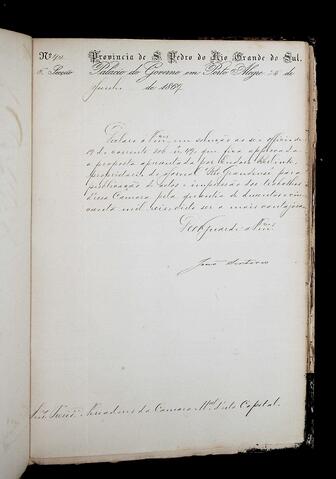 Provincia de S. Pedro do Rio Grande do Sul.
Palacio do Governo em Porto Alegre 24 de
Junho de 1887.
Declaro a Vmces em solução ao seu officio de
19 do corrente sob nº 49, que fica approvada
a proposta apresentada por
proprietario do jornal Rio Grandense para
publicação de actos e impressão dos trabalhos
d'essa Camara pela quantia de duzentos e
mil reis visto ser a mais vantajosa
Deos Guarde a Vmces
Vereadores da Camara Mal d'esta Capital.